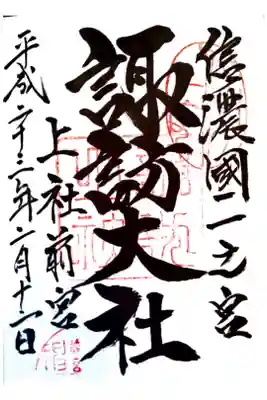 信濃國一之宮
諏訪大社
上社前宮
平成二十三年二月十二日